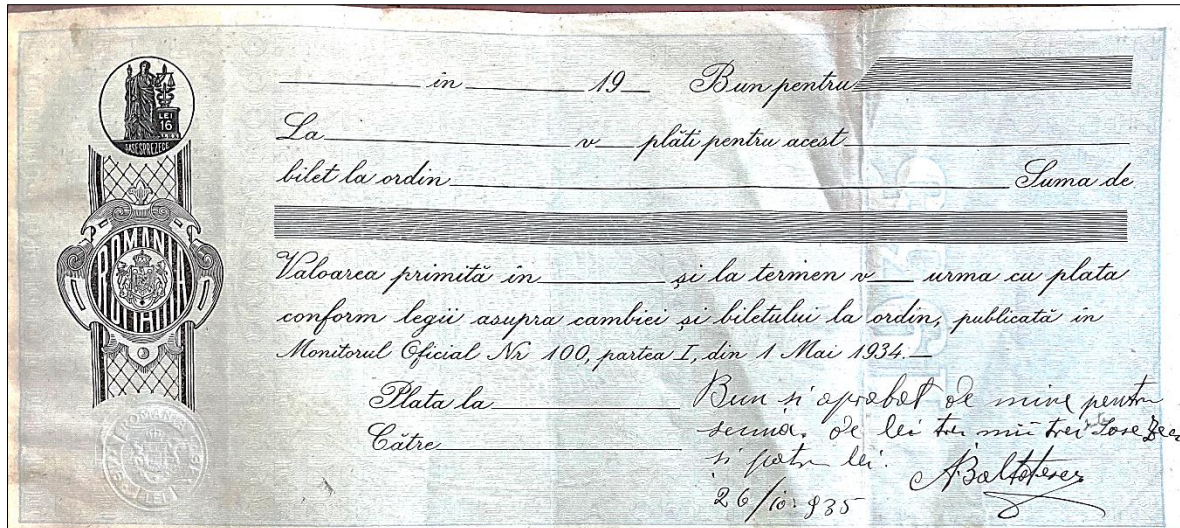 LEI
16
ȘASESPREZECE
ROMANIA
___ in ___ 19__ Bun pentru
La ___ v__ plăti pentru acest ___
bilet la ordin ___ Suma de
Valoarea primită in ___ și la termen v__ urma cu plata
conform legii asupra cambiei și biletului la ordin, publicată in
Monitorul Oficial Nr 100, partea I, din 1 Mai 1934.—
Plata la ___
Către ___
Bun si aprobat de mine pentru
suma, de lei trei mii trei
si patru lei.
26/10.935